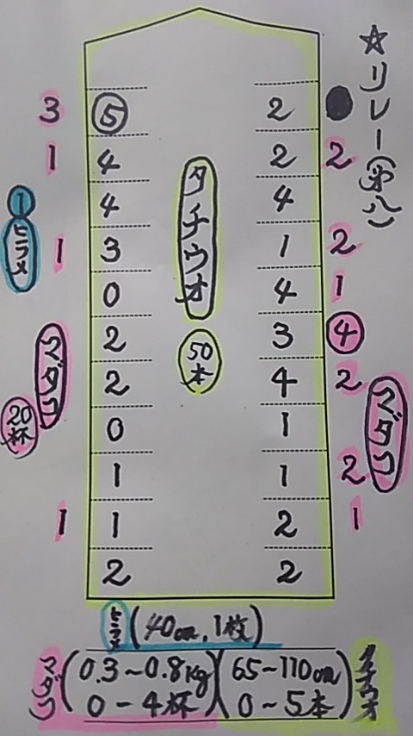 ☆リレー(第八)
タチウオ
50本
3 ⑤ 2
1 4 2 2
4 4
1 3 1 2
0 4 1
2 3 ④
2 4 2
0 1
1 1 2
1 1 2 1
2 2
1 ヒラメ
マダコ
20杯
マダコ
ヒラメ(40cm, 1枚)
マダコ(0.3~0.8kg
0-4杯)
(65~110cm
0~5本)タチウオ